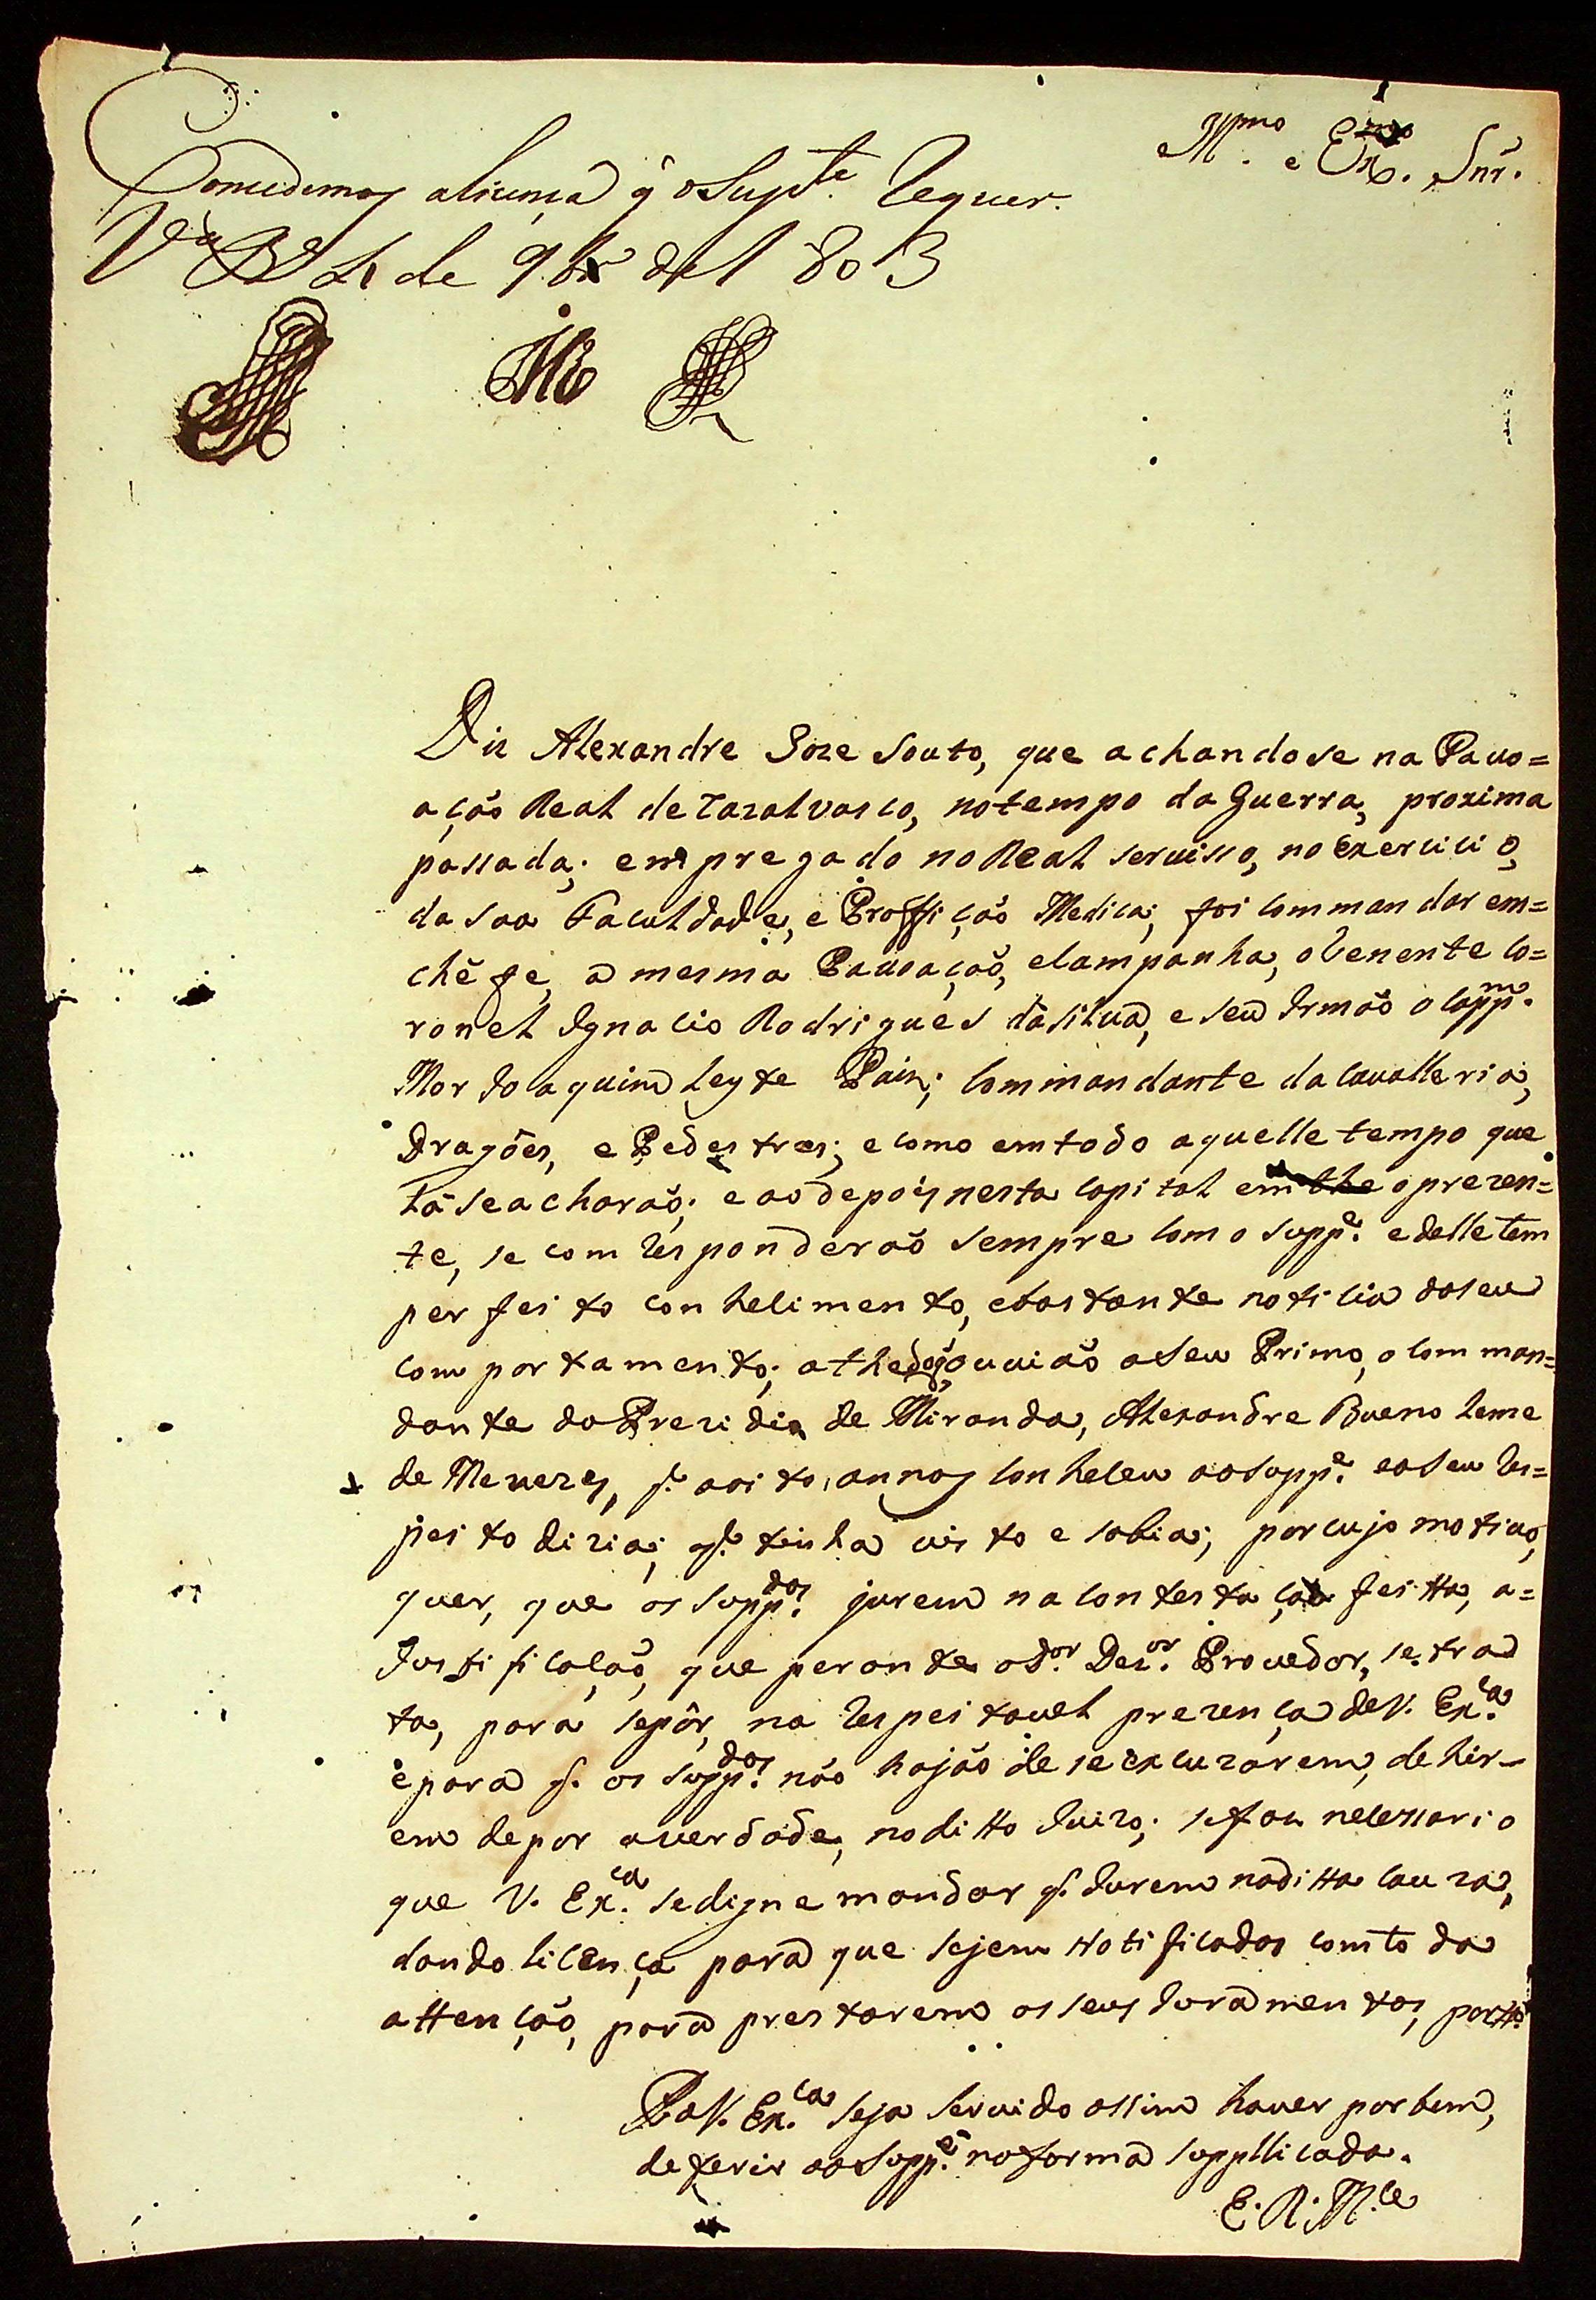 Illmo e Exmo. Snr.
Concedemos a licença q̃ o Supte. requer.
Va Ba 21 de 9br.o de 1803
Diz Alexandre Joze Souto, que achandose na Pauo=
ação Real de Cazalvasco, no tempo da Guerra, proxima
passada; empregado no Real seruisso, no exercicio,
da sua Faculdade, e Proffição Medica; foi Commandar em=
chéfe, a mesma Pauoação, e Campanha, o Tenente Co=
ronel Ignacio Rodrigues da Silua, e seu Irmão o Cappm.
Mor Joaquim Leyte Pain; Commandante da Caualleria,
Dragões, e Pedestres; e como em todo aquelle tempo que
lá se acharão; e ao depoiz nesta Capital em the o prezen=
te, se com responderão sempre com o suppe. e delle tem
perfeito conhecimento, e bastante noticia do seu
comportamento; athe ouuião a seu Primo, o Comman=
dante do Prezidio de Miranda, Alexandre Bueno Leme
de Menezes, q. a oito annos Conheceu ao suppe. e a seu res=
peito dizia; q. tinha uisto e sabia; por cujo motiuo,
quer, que os suppdos. jurem na Contestação feitta, a=
Justificação, que perante o Dor. Dezor. Prouedor, se tra
ta, para se pôr, na respeitauel prezença de V. Exca.
e para q. os suppdos. não hajão de se excuzarem, de hir-
em depor a uerdade, no ditto Juizo; se faz necessario
que V. Exca. se digne mandar q. Jurem na ditta Cauza,
dando licença para que sejem Notificados com to da
attenção, para prestarem os seus Juramentos, portto.
P. a V. Exca. seja seruido assim hauer por bem,
deferir ao suppe. na forma suppllicada.
E. R. Mce